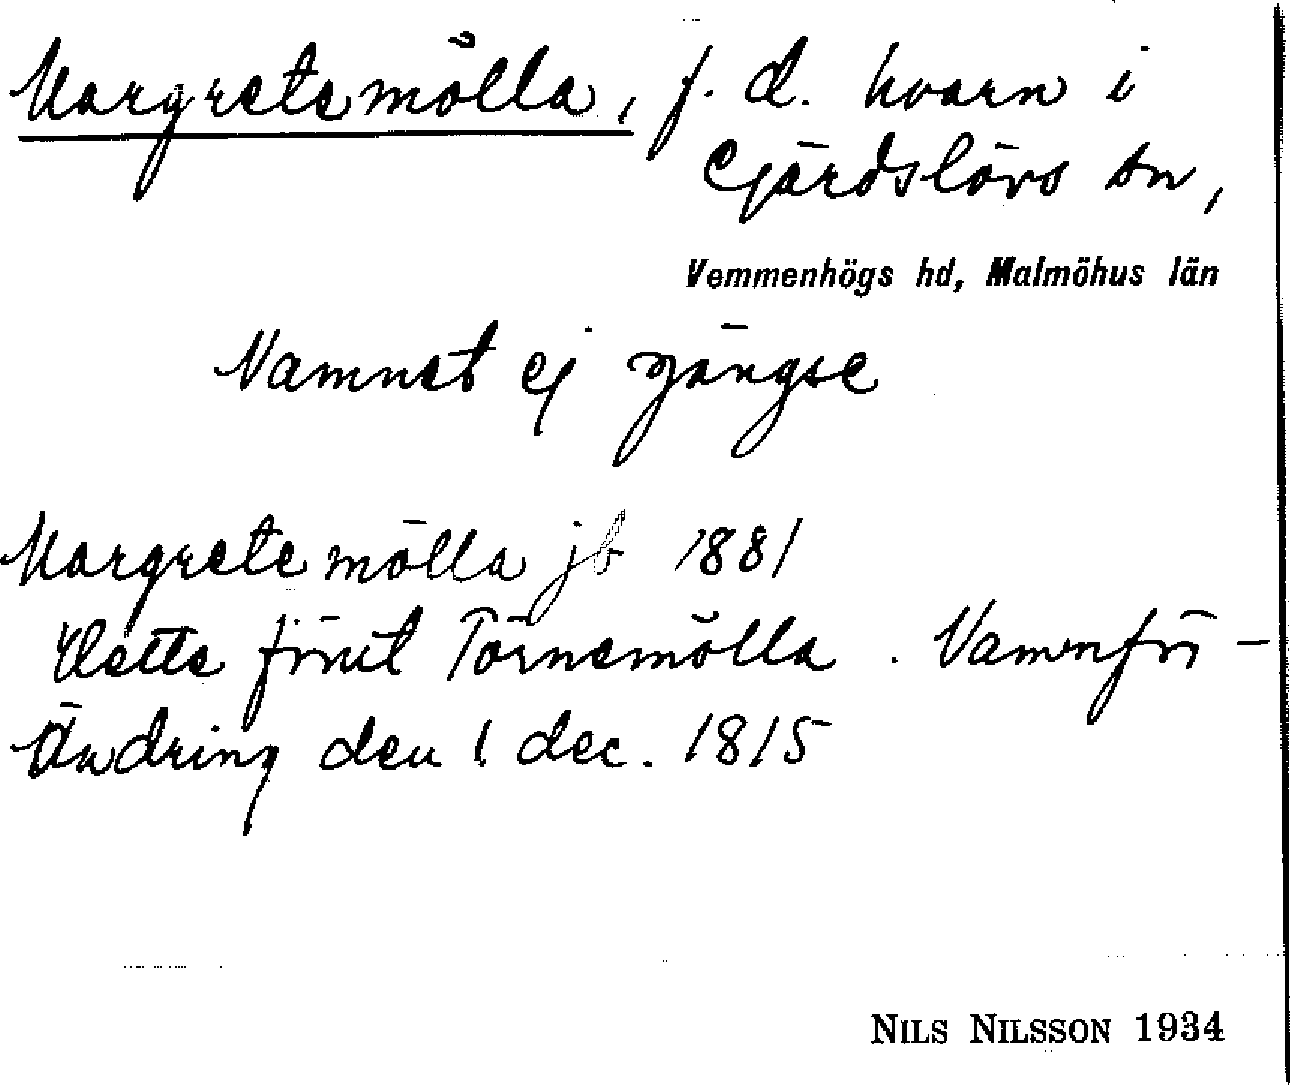 Margretemölla, f. d. kvarn i
Gärdslövs sn,
Vemmenhögs hd, Malmöhus län
Namnet ej gängse
Margretemölla jb 1881
Detta förut Törnemölla. Namnför-
ändring den 1 dec. 1815
NILS NILSSON 1934